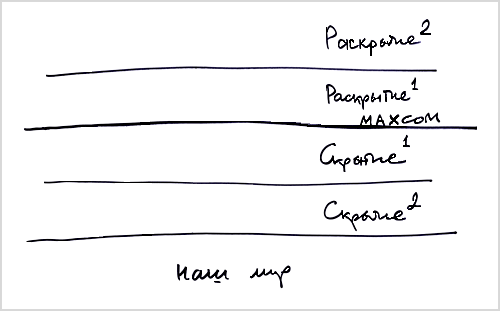 Раскрытие²
Раскрытие¹
MAXCOM
Скрытие¹
Скрытие²
Наш мир